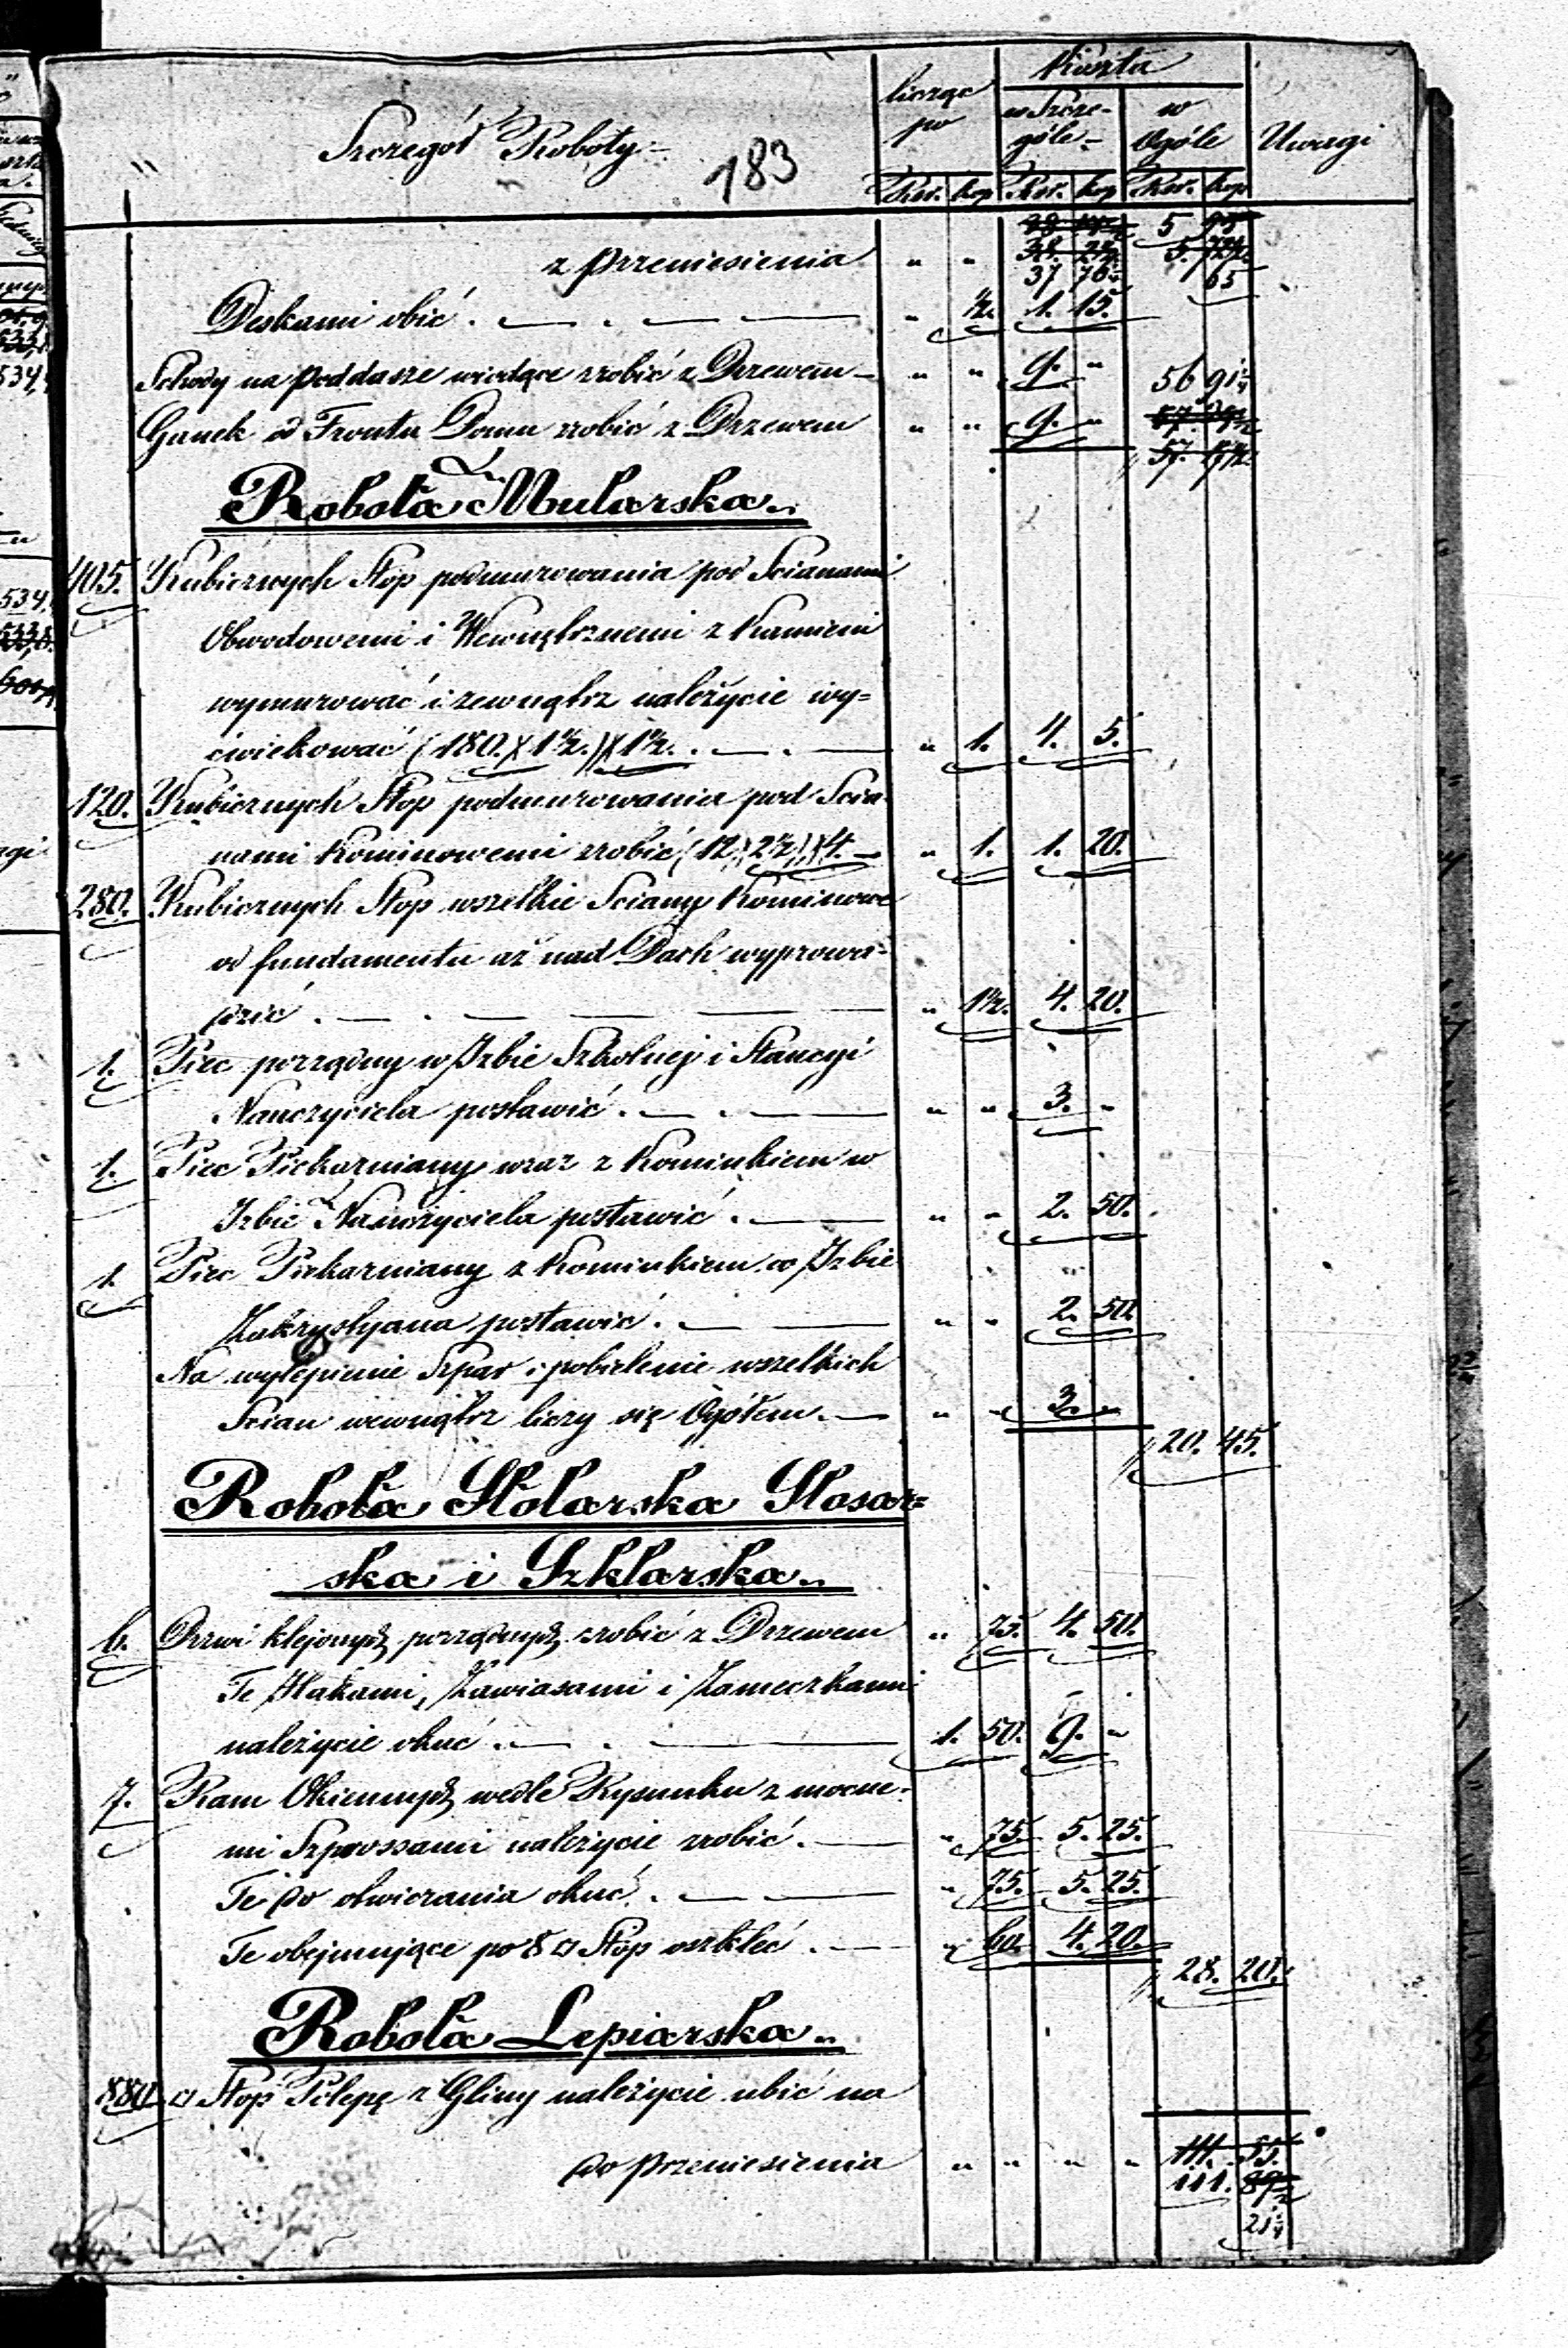 Szczegół Roboty
183
licząc po
Koszta
w Szcze-
góle
w
Ogóle
Uwagi
Rsr. kop Rsr. kop Rsr. kop
5 95
z przeniesienia " " 38. 5. 72½
37 76 65
Deskami obić . — . — — " ½. 1. 15.
Schody na poddasze wiodące zrobić z Drzewem — " " 9. " 56 91¼
Ganek od Frontu Domu zrobić z Drzewem " " 9. " 57.
57.
Robota Mularska
405. Kubicznych Stóp podmurowania pod Scianami
Obwodowemi i Wewnętrznemi z Kamieni
wymurować i zewnątrz należycie wy=
ćwiekować (180.)(1½.)(1½. . — . — " 1. 4. 5.
120. Kubicznych Stop podmurowania pod Scia-
nami Kominowemi zrobić (12.)(2½.)(4. — " 1. 1. 20.
280. Kubicznych Stop wszelkie Sciany Kominowe
od fundamentu aż nad Dach wyprowa=
dzić . — . — — — — " 1½. 4. 20.
1. Piec porządny w Izbie Szkolnej i Stancyi
Nauczyciela postawić . — . — " " 3. "
1. Piec Piekarniany wraz z Kominkiem w
Izbie Nauczyciela postawić . — " " 2. 50.
1. Piec Piekarniany z Kominkiem w Izbie
Zakrystyana postawić . — — " " 2. 50.
Na wylepienie Szpar i pobielenie wszelkich
Scian wewnątrz liczy się Ogółem . — " " 3. "
20. 45.
Robota Stolarska Slosar=
ska i Szklarska
6. Drzwi klejonych porządnych zrobić z Drzewem " 75. 4. 50.
Te Hakami, Zawiasami i Zameczkami
należycie okuć . — . — 1. 50. 9. "
7. Ram Okiennych wedle Rysunku z mocne-
mi Szprossami należycie zrobić . — " 75. 5. 25.
Te do otwierania okuć . — — " 75. 5. 25.
Te obejmujące po 8 □ Stóp oszkleć . — " 60. 4. 20.
28. 20.
Robota Lepiarska
880. □ Stóp Polepę z Gliny należycie ubić na
do przeniesienia " " " " 111. 55.
111. 89½
21¼